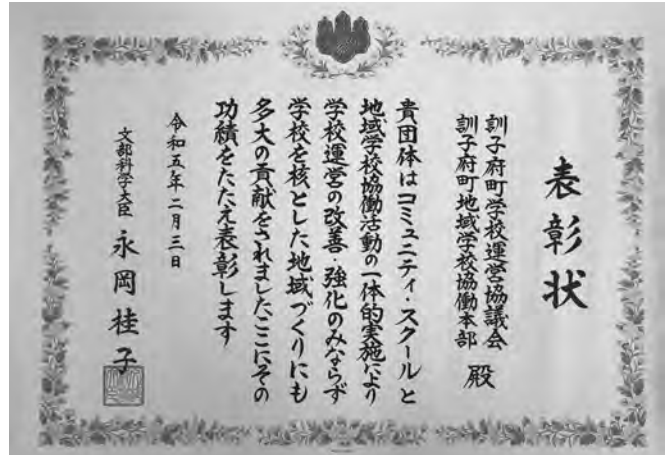 表彰状
訓子府町学校運営協議会
訓子府町地域学校協働本部 殿
貴団体はコミュニティ・スクールと
地域学校協働活動の一体的実施により
学校運営の改善・強化のみならず
学校を核とした地域づくりにも
多大の貢献をされましたここにその
功績をたたえ表彰します
令和五年二月三日
文部科学大臣 永岡桂子